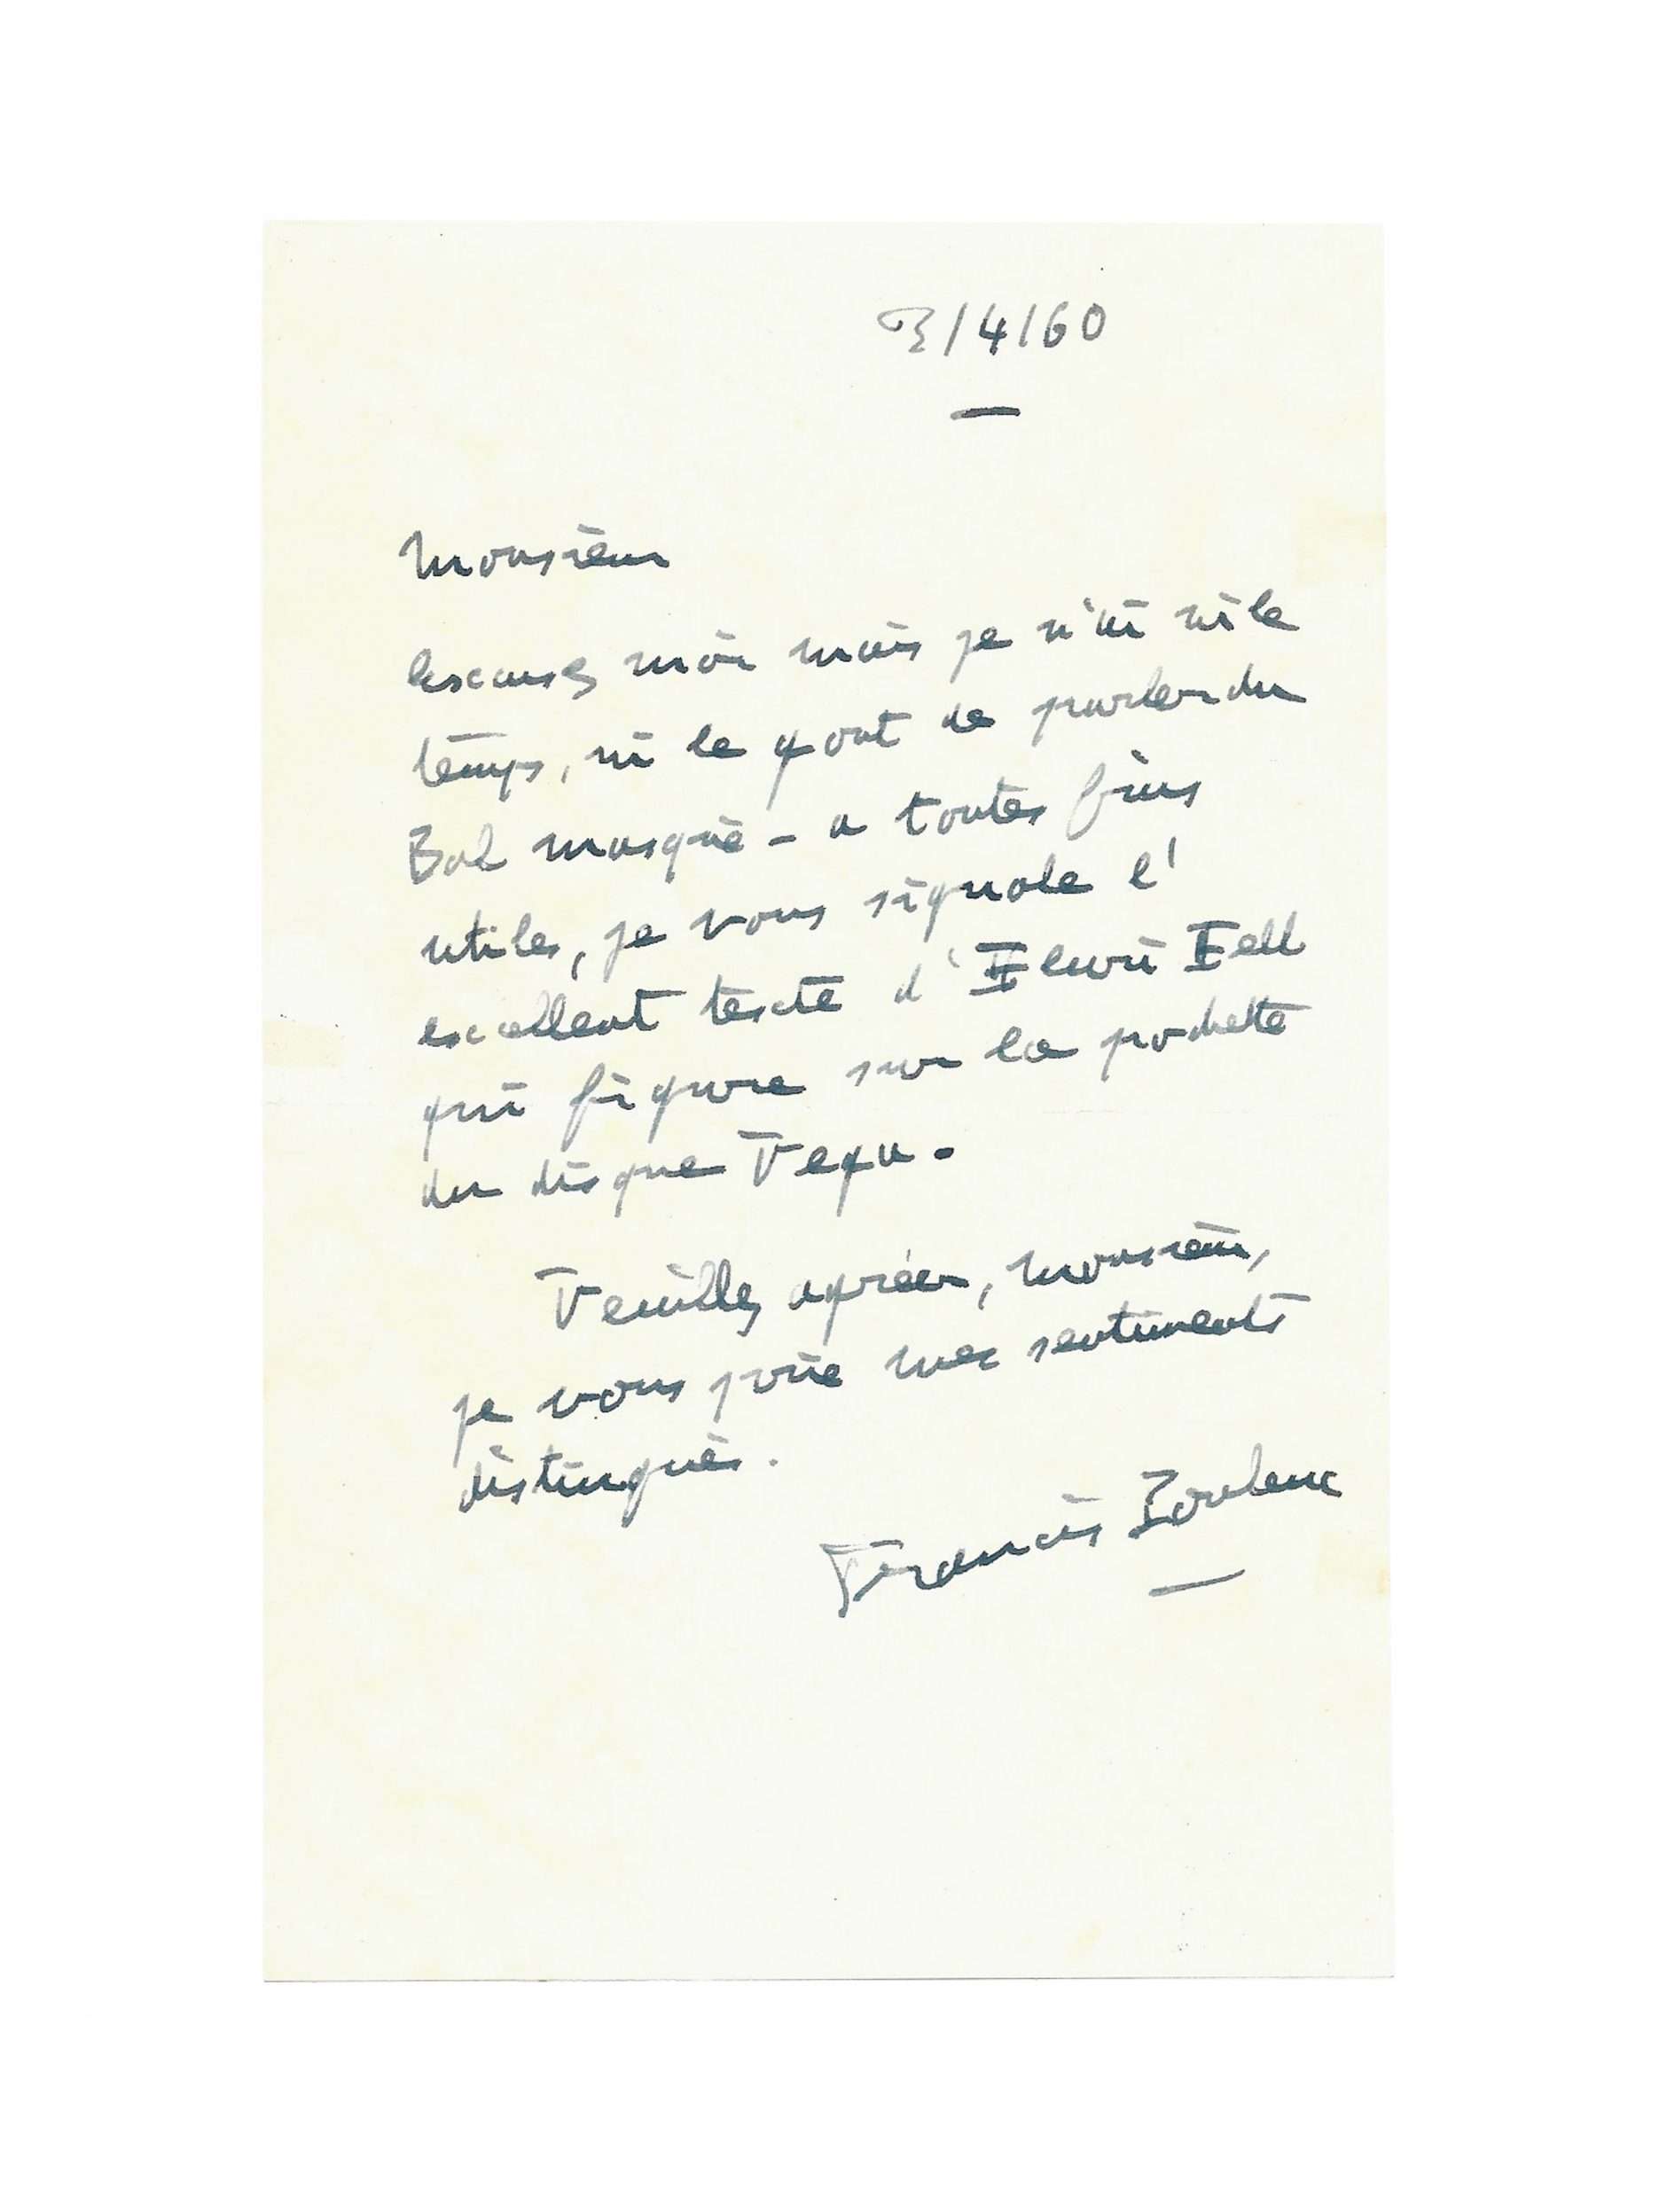 3/4/60
Monsieur
Excusez moi mais je n'ai ni le
temps, ni le gout de parler du
Bal masqué - a toutes fins
utiles, je vous signale l'
excellent texte d'Henri Hell
qui figure sur la pochette
du disque Vega.
Veuillez agréer, Monsieur,
je vous prie mes sentiments
distingués.
Francis Poulenc